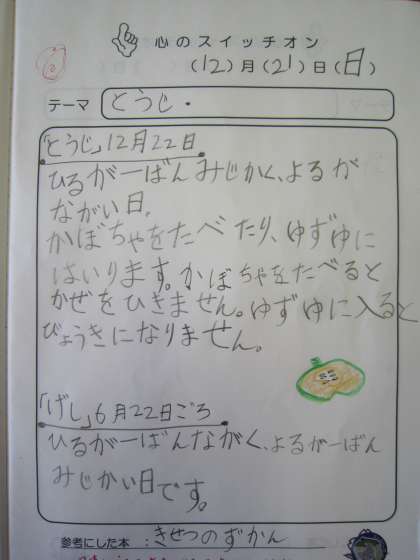 心のスイッチオン
(12)月(21)日(日)
テーマ とうじ・
「とうじ」12月22日
ひるが一ばんみじかく、よるが
ながい日。
かぼちゃをたべたり、ゆずゆに
はいります。かぼちゃをたべると
かぜをひきません。ゆずゆに入ると
びょうきになりません。
「げし」6月22日ごろ
ひるが一ばんながく、よるが一ばん
みじかい日です。
参考にした本：きせつのずかん